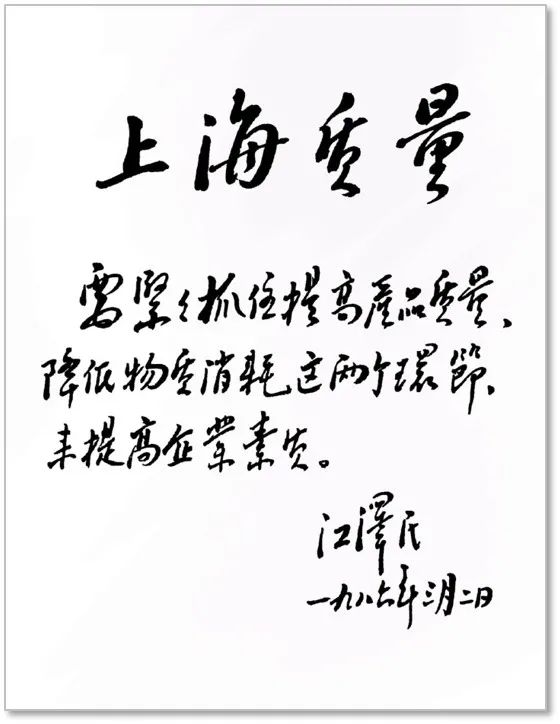 上海质量
需緊々抓住提高產品质量、
降低物质消耗这两个環節、
来提高企業素质。
江澤民
一九八六年三月二日